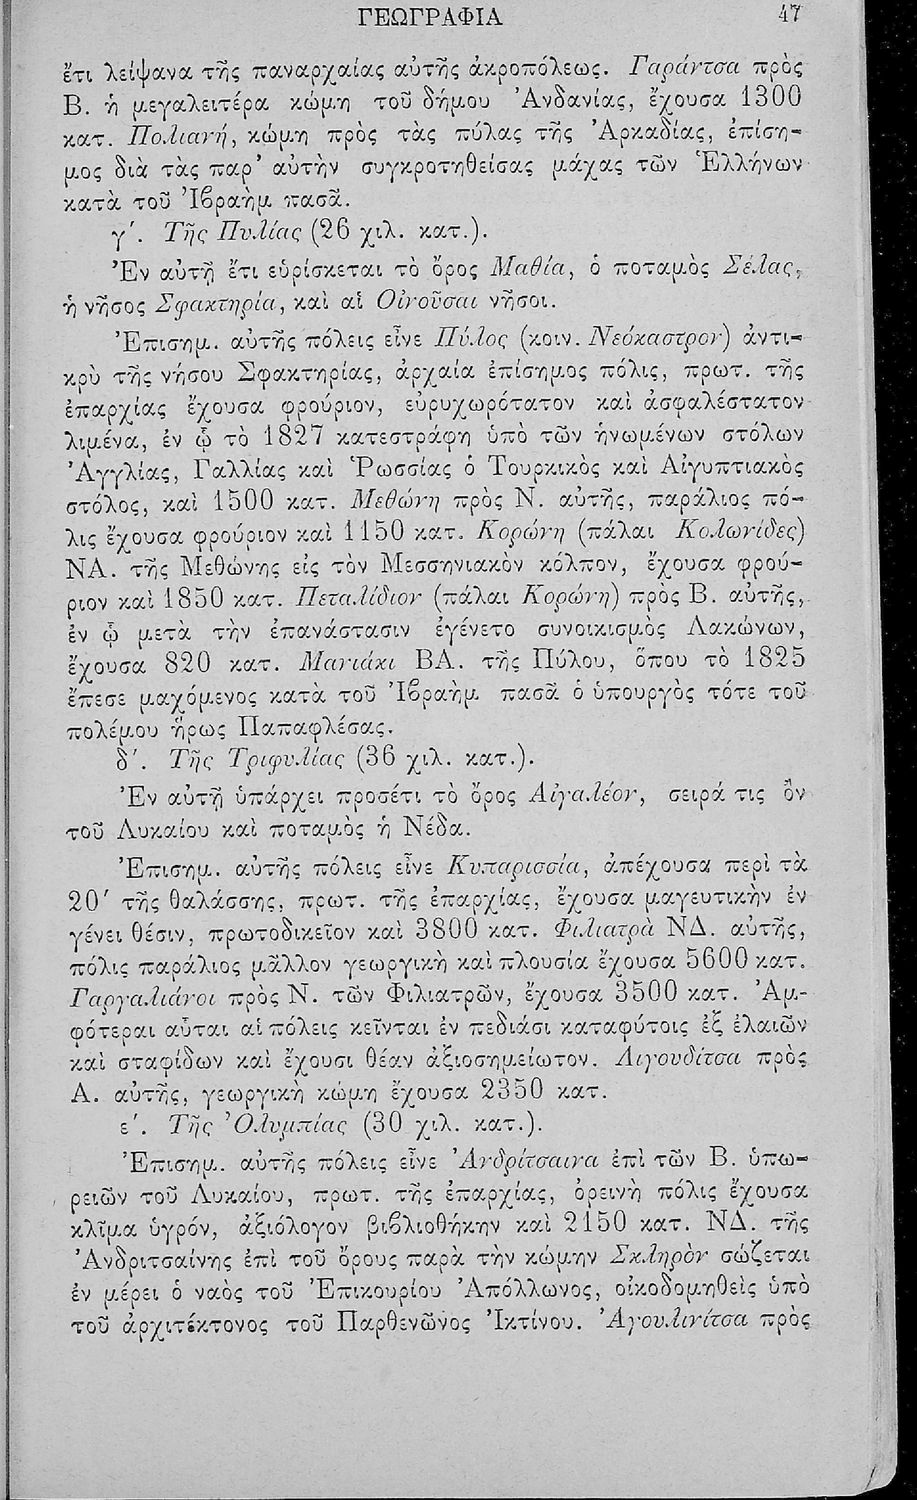 ΓΕΩΓΡΑΦΙΑ 47
ἔτι λείψανα τῆς παναρχαίας αὐτῆς ἀκροπόλεως. Γαράντσα πρὸς
Β. ἡ μεγαλειτέρα κώμη τοῦ δήμου Ἀνδανίας, ἔχουσα 1300
κατ. Πολιανή, κώμη πρὸς τὰς πύλας τῆς Ἀρκαδίας, ἐπίση-
μος διὰ τὰς παρ’ αὐτὴν συγκροτηθείσας μάχας τῶν Ἑλλήνων
κατὰ τοῦ Ἰβραὴμ πασᾶ.
γ΄. Τῆς Πυλίας (26 χιλ. κατ.).
Ἐν αὐτῇ ἔτι εὑρίσκεται τὸ ὄρος Μαθία, ὁ ποταμὸς Σέλας,
ἡ νῆσος Σφακτηρία, καὶ αἱ Οἰνοῦσαι νῆσοι.
Ἐπισημ. αὐτῆς πόλεις εἶνε Πύλος (κοιν. Νεόκαστρον) ἀντι-
κρὺ τῆς νήσου Σφακτηρίας, ἀρχαία ἐπίσημος πόλις, πρωτ. τῆς
ἐπαρχίας ἔχουσα φρούριον, εὐρυχωρότατον καὶ ἀσφαλέστατον
λιμένα, ἐν ᾧ τὸ 1827 κατεστράφη ὑπὸ τῶν ἡνωμένων στόλων
Ἀγγλίας, Γαλλίας καὶ Ῥωσσίας ὁ Τουρκικὸς καὶ Αἰγυπτιακὸς
στόλος, καὶ 1500 κατ. Μεθώνη πρὸς Ν. αὐτῆς, παράλιος πό-
λις ἔχουσα φρούριον καὶ 1150 κατ. Κορώνη (πάλαι Κολωνίδες)
ΝΑ. τῆς Μεθώνης εἰς τὸν Μεσσηνιακὸν κόλπον, ἔχουσα φρού-
ριον καὶ 1850 κατ. Πεταλίδιον (πάλαι Κορώνη) πρὸς Β. αὐτῆς,
ἐν ᾧ μετὰ τὴν ἐπανάστασιν ἐγένετο συνοικισμὸς Λακώνων,
ἔχουσα 820 κατ. Μανιάκι ΒΑ. τῆς Πύλου, ὅπου τὸ 1825
ἔπεσε μαχόμενος κατὰ τοῦ Ἰβραὴμ πασᾶ ὁ ὑπουργὸς τότε τοῦ
πολέμου ἥρως Παπαφλέσας.
δ΄. Τῆς Τριφυλίας (36 χιλ. κατ.).
Ἐν αὐτῇ ὑπάρχει προσέτι τὸ ὄρος Αἰγαλέον, σειρά τις ὂν
τοῦ Λυκαίου καὶ ποταμὸς ἡ Νέδα.
Ἐπισημ. αὐτῆς πόλεις εἶνε Κυπαρισσία, ἀπέχουσα περὶ τὰ
20΄ τῆς θαλάσσης, πρωτ. τῆς ἐπαρχίας, ἔχουσα μαγευτικὴν ἐν
γένει θέσιν, πρωτοδικεῖον καὶ 3800 κατ. Φιλιατρὰ ΝΔ. αὐτῆς,
πόλις παράλιος μᾶλλον γεωργικὴ καὶ πλουσία ἔχουσα 5600 κατ.
Γαργαλιάνοι πρὸς Ν. τῶν Φιλιατρῶν, ἔχουσα 3500 κατ. Ἀμ-
φότεραι αὗται αἱ πόλεις κεῖνται ἐν πεδιάσι καταφύτοις ἐξ ἐλαιῶν
καὶ σταφίδων καὶ ἔχουσι θέαν ἀξιοσημείωτον. Λιγουδίτσα πρὸς
Α. αὐτῆς, γεωργικὴ κώμη ἔχουσα 2350 κατ.
ε΄. Τῆς Ὀλυμπίας (30 χιλ. κατ.).
Ἐπισημ. αὐτῆς πόλεις εἶνε Ἀνδρίτσαινα ἐπὶ τῶν Β. ὑπω-
ρειῶν τοῦ Λυκαίου, πρωτ. τῆς ἐπαρχίας, ὀρεινὴ πόλις ἔχουσα
κλῖμα ὑγρόν, ἀξιόλογον βιβλιοθήκην καὶ 2150 κατ. ΝΔ. τῆς
Ἀνδριτσαίνης ἐπὶ τοῦ ὄρους παρὰ τὴν κώμην Σκληρὸν σώζεται
ἐν μέρει ὁ ναὸς τοῦ Ἐπικουρίου Ἀπόλλωνος, οἰκοδομηθεὶς ὑπὸ
τοῦ ἀρχιτέκτονος τοῦ Παρθενῶνος Ἰκτίνου. Ἀγουλινίτσα πρὸς